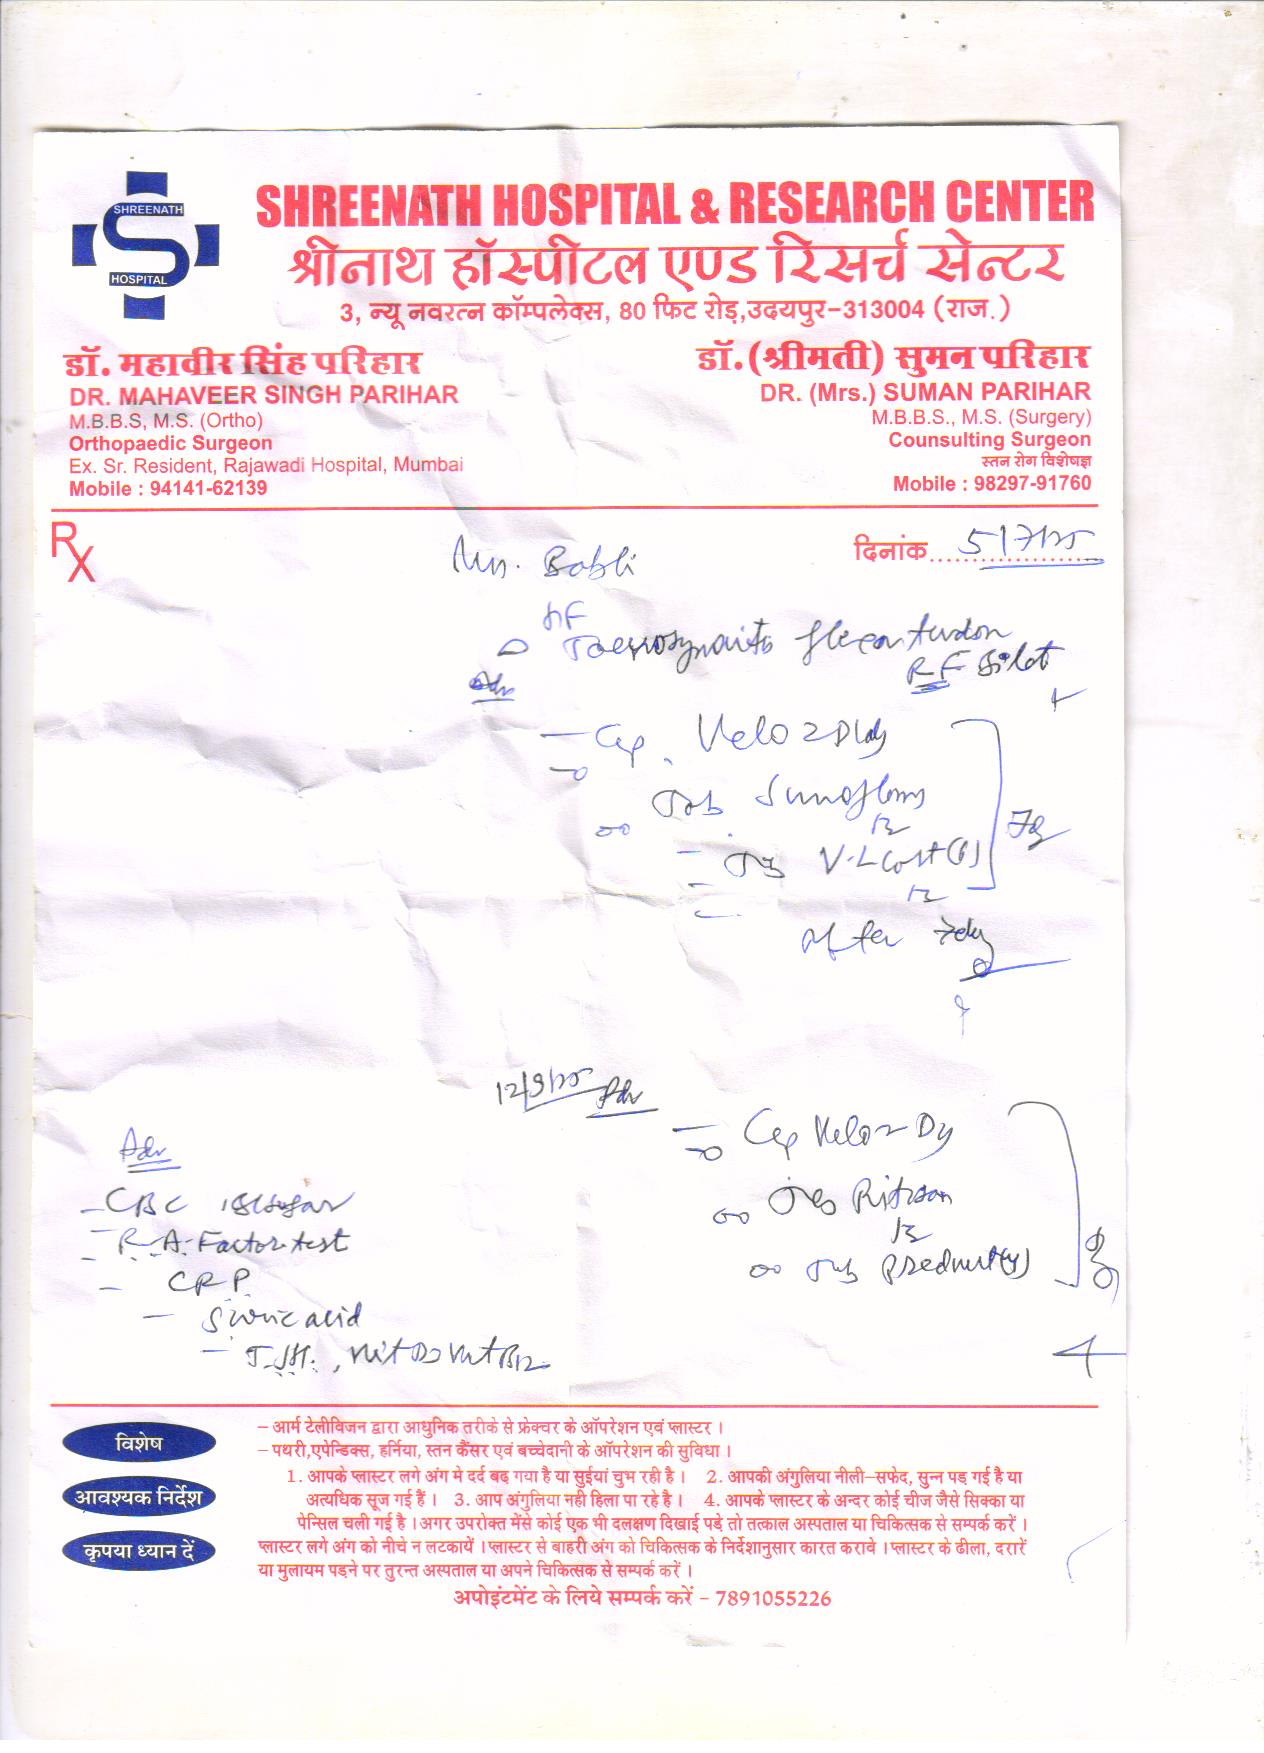 SHREENATH
HOSPITAL
SHREENATH HOSPITAL & RESEARCH CENTER
श्रीनाथ हॉस्पीटल एण्ड रिसर्च सेन्टर
3, न्यू नवरत्न कॉम्पलेक्स, 80 फिट रोड़,उदयपुर-313004 (राज.)
डॉ. महावीर सिंह परिहार
DR. MAHAVEER SINGH PARIHAR
M.B.B.S, M.S. (Ortho)
Orthopaedic Surgeon
Ex. Sr. Resident, Rajawadi Hospital, Mumbai
Mobile : 94141-62139
डॉ.(श्रीमती) सुमन परिहार
DR. (Mrs.) SUMAN PARIHAR
M.B.B.S., M.S. (Surgery)
Counsulting Surgeon
स्तन रोग विशेषज्ञ
Mobile : 98297-91760
Rx
दिनांक 5/7/25
Mrs. Babli
flexor tendon
RF
Adv
Cap. Velo 2 D
Tab
V-L Cort (6)
after 7 day
Adv
Cap Velo 2 D
Adv
- CBC
- R.A. Factor test
- CRP
- S uric acid
- Vit D3 Vit B12
विशेष
आवश्यक निर्देश
कृपया ध्यान दें
– आर्म टेलीविजन द्वारा आधुनिक तरीके से फ्रेक्चर के ऑपरेशन एवं प्लास्टर ।
– पथरी,एपेन्डिक्स, हर्निया, स्तन कैंसर एवं बच्चेदानी के ऑपरेशन की सुविधा ।
1. आपके प्लास्टर लगे अंग मे दर्द बढ़ गया है या सुईयां चुभ रही है । 2. आपकी अंगुलिया नीली–सफेद, सुन्न पड़ गई है या
अत्यधिक सूज गई हैं । 3. आप अंगुलिया नही हिला पा रहे है । 4. आपके प्लास्टर के अन्दर कोई चीज जैसे सिक्का या
पेन्सिल चली गई है । अगर उपरोक्त मेंसे कोई एक भी दलक्षण दिखाई पड़े तो तत्काल अस्पताल या चिकित्सक से सम्पर्क करें ।
प्लास्टर लगे अंग को नीचे न लटकायें । प्लास्टर से बाहरी अंग को चिकित्सक के निर्देशानुसार कारत करावे । प्लास्टर के ढीला, दरारें
या मुलायम पड़ने पर तुरन्त अस्पताल या अपने चिकित्सक से सम्पर्क करें ।
अपोइंटमेंट के लिये सम्पर्क करें – 7891055226